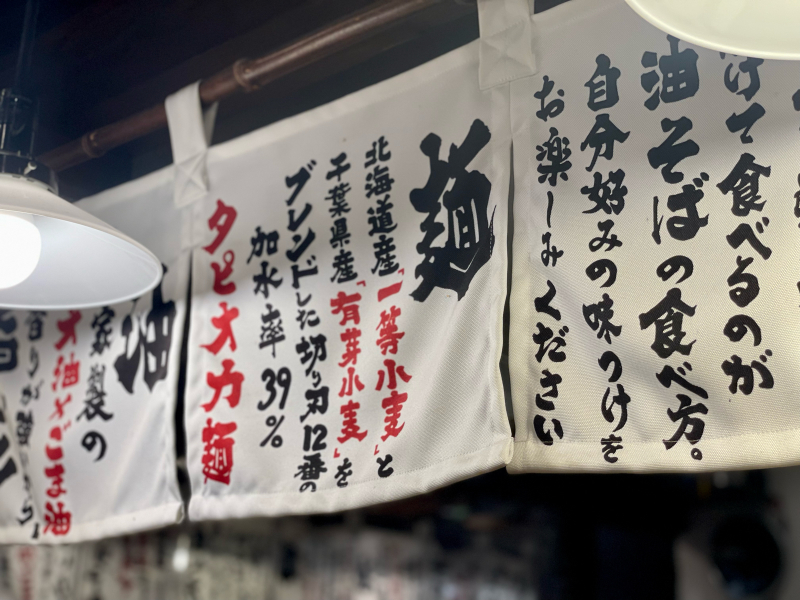 けて食べるのが
油そばの食べ方。
自分好みの味つけを
お楽しみください
麺
北海道産「一等小麦」と
千葉県産「有芽小麦」を
ブレンドした切り刃12番の
加水率39%
タピオカ麺
油
家製の
大油とごま油